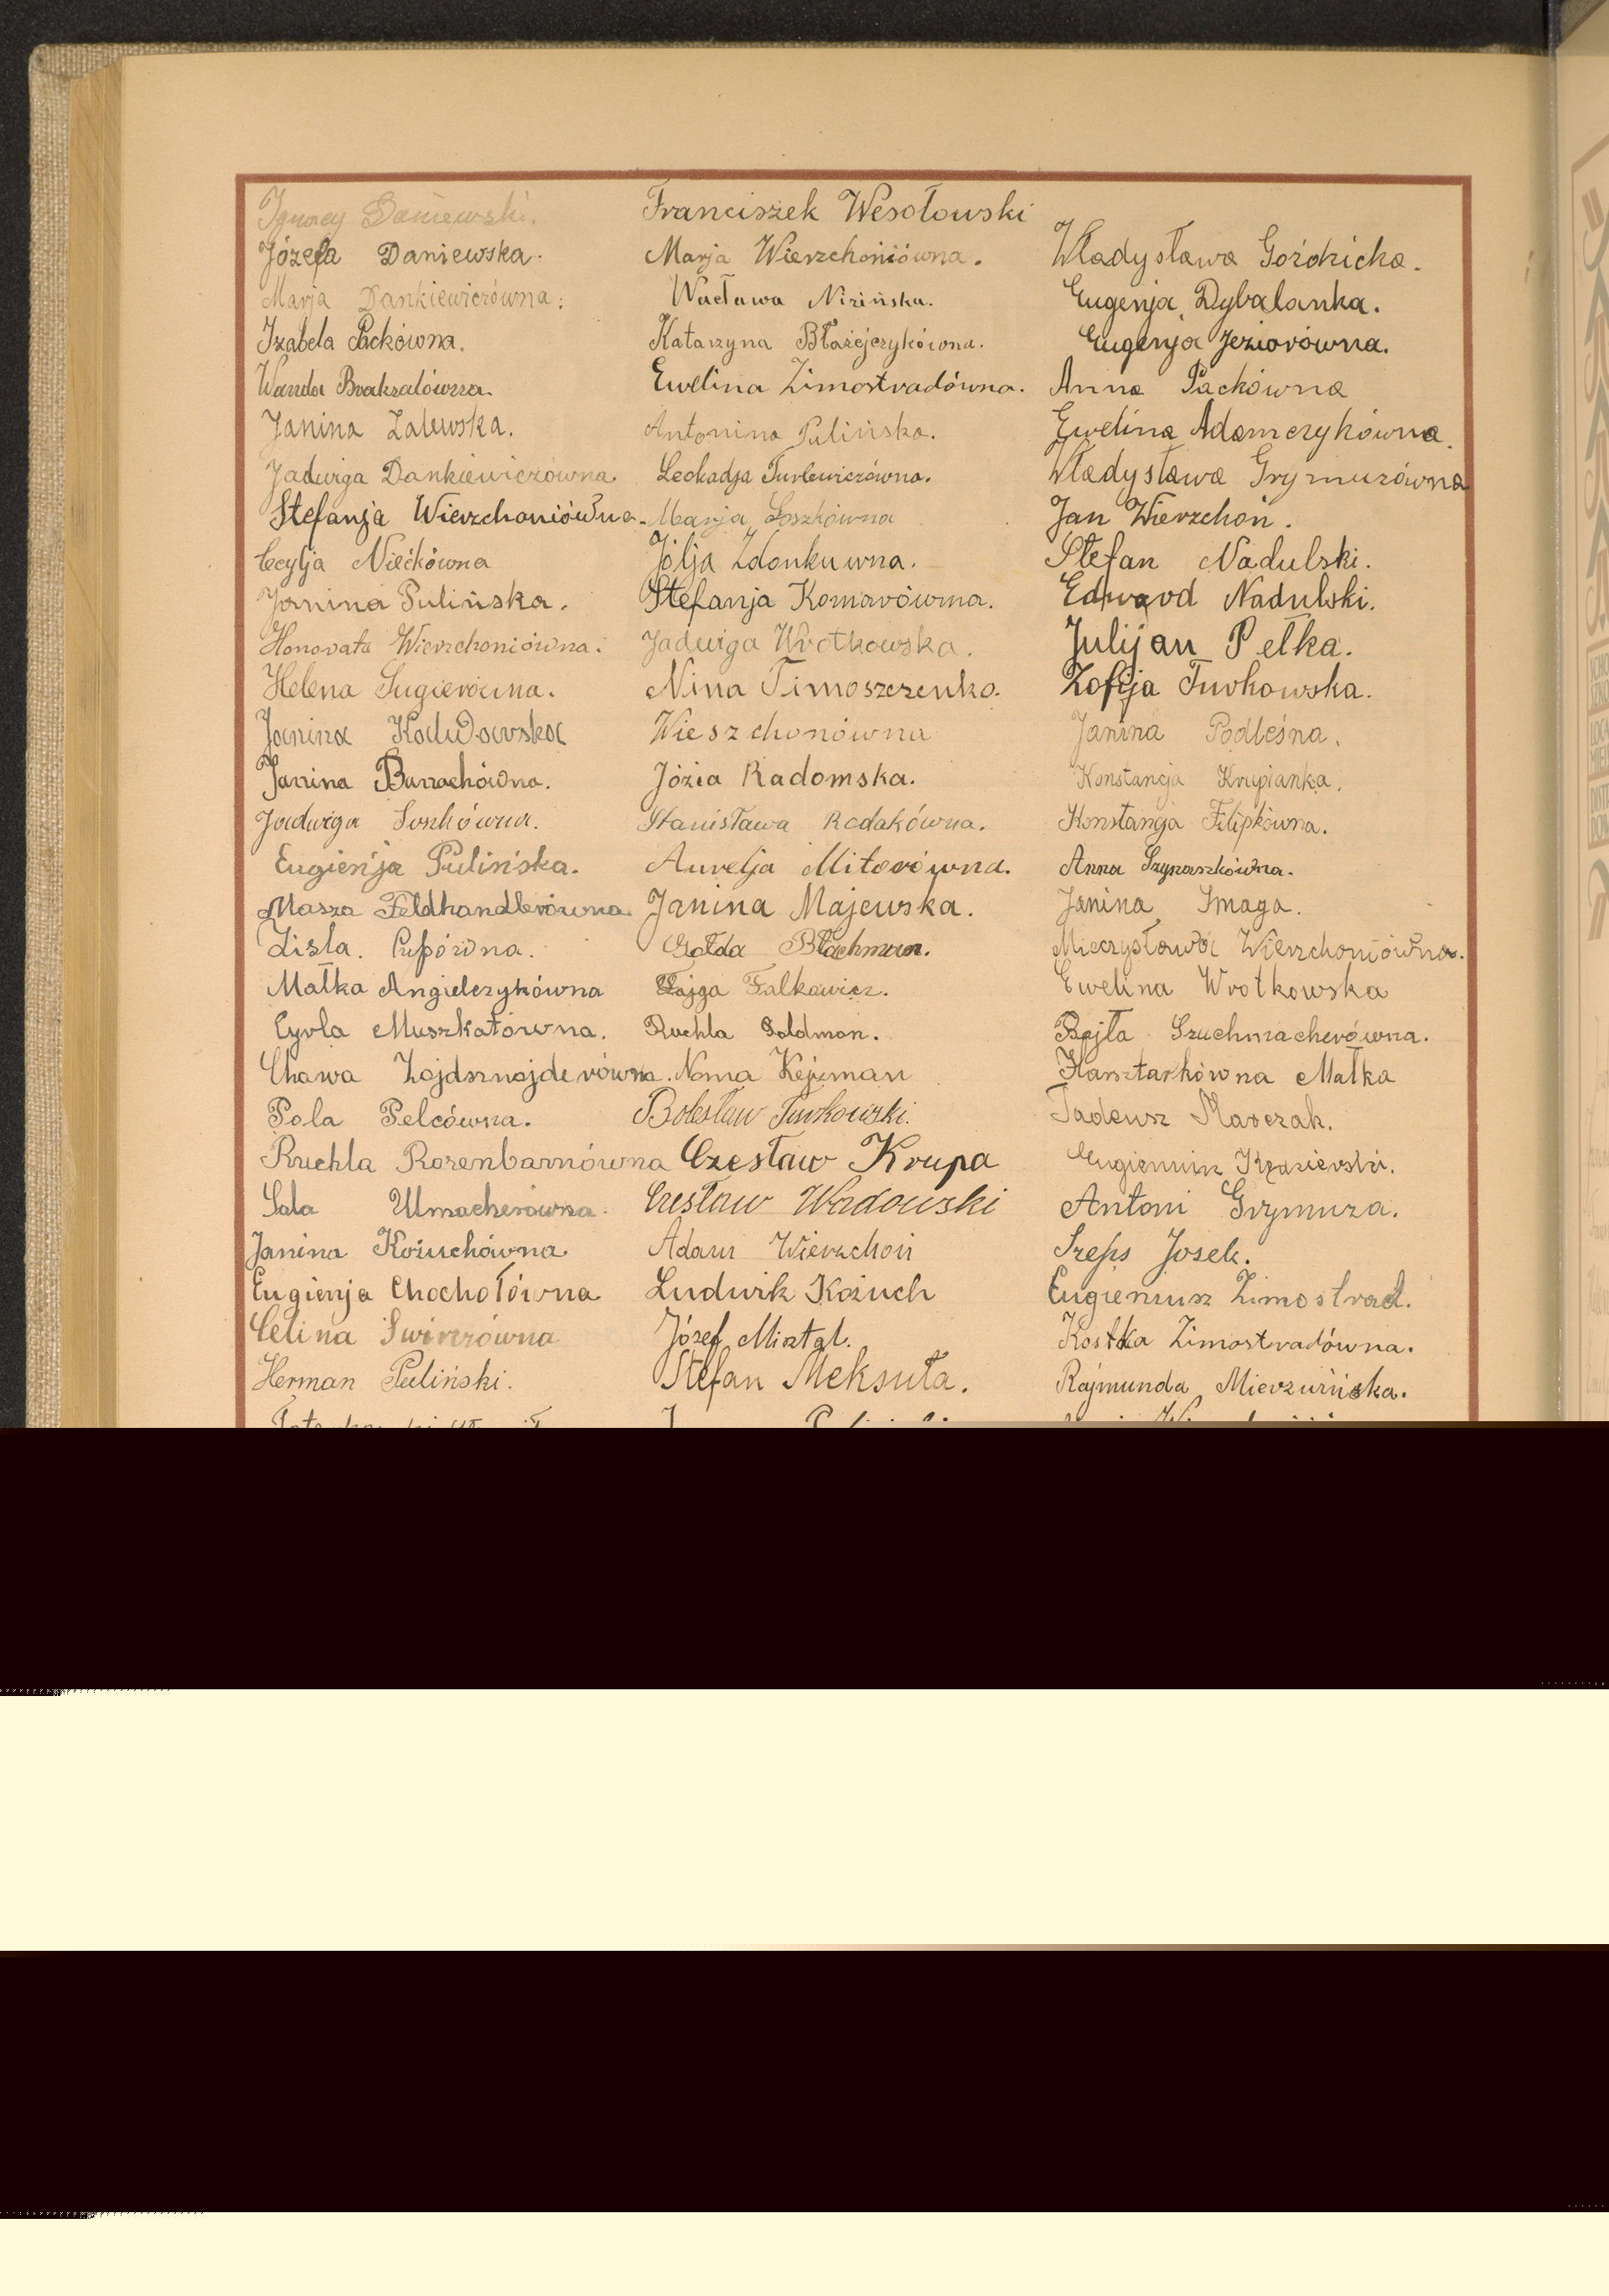 Ignacy Daniewski.
Józefa Daniewska.
Marja Dankiewiczówna.
Izabela Packówna.
Wanda Braksalówna.
Janina Zalewska.
Jadwiga Dankiewiczówna.
Stefanja Wierzchoniówna.
Cecylja Niećkówna
Janina Pulińska.
Honorata Wierzchoniówna.
Helena Sugierówna.
Janina
Janina
Jadwiga Soszkówna.
Eugienja Pulińska.
Masza Feldhandlerówna
Zisla.
Małka Angielczykówna
Cyrla Muszkatówna.
Chawa Zajdsznajderówna.
Pola Pelcówna.
Ruchla Rozenbarnówna
Sala Ulmacherówna.
Janina Kożuchówna
Eugienja Chochołówna
Celina Swirzówna
Herman Puliński.
Franciszek Wesołowski
Marja Wierzchoniówna.
Wacława Nizińska.
Katarzyna Błażejczykówna.
Ewelina Zimostradówna.
Antonina Pulińska.
Leokadja Turlewiczówna.
Marja Loszkówna
Jólja Zdonkuwna.
Stefanja Komarówna.
Jadwiga Wrotkowska.
Nina Timoszczenko.
Wieszchonówna
Józia Radomska.
Stanisława Rodakówna.
Aurelja Mitorówna.
Janina Majewska.
Gołda Błachman.
Fajga Falkowicz.
Ruchla Goldman.
Noma Kejzman
Bolesław Turkowski.
Czesław Krupa
Czesław Wadowski
Adam Wierzchoń
Ludwik Kożuch
Józef Misztal.
Stefan Meksuła.
Władysława Goździcka.
Eugenja Dybalanka.
Eugenja Jeziorówna.
Anna Packówna
Ewelina Adamczykówna.
Władysława Grymuzówna
Jan Wierzchoń.
Stefan Nadulski.
Edward Nadulski.
Julijan Pełka.
Zofija Turkowska.
Janina Podleśna.
Konstancja Krupianka.
Konstanija Filipkówna.
Anna Szynaszkówna.
Janina Smaga.
Mieczysława Wierzchoniówna.
Ewelina Wrotkowska
Bajła Szuchmacherówna.
Harsztarkówna Małka
Tadeusz Marczak.
Eugieniusz
Antoni Grymuza.
Szeps Josek.
Eugieniusz Zimostrad.
Kostka Zimostradówna.
Rajmunda Mierzwińska.